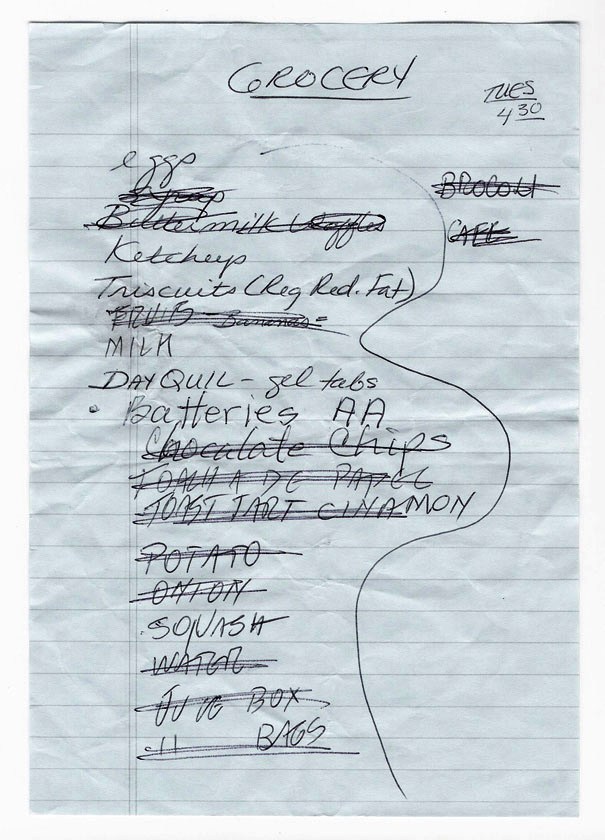 GROCERY
TUES
4 30
eggs
Syrup
Buttermilk Waffles
Ketchup
Triscuits (Reg Red. Fat)
FRUITS - Bananas =
MILK
DAYQUIL - gel tabs
• Batteries AA
Chocolate Chips
DE PAPEL
TOAST TART CINAMON
POTATO
ONION
SQUASH
WATER
BOX
" BAGS
BROCOLI
CAFE